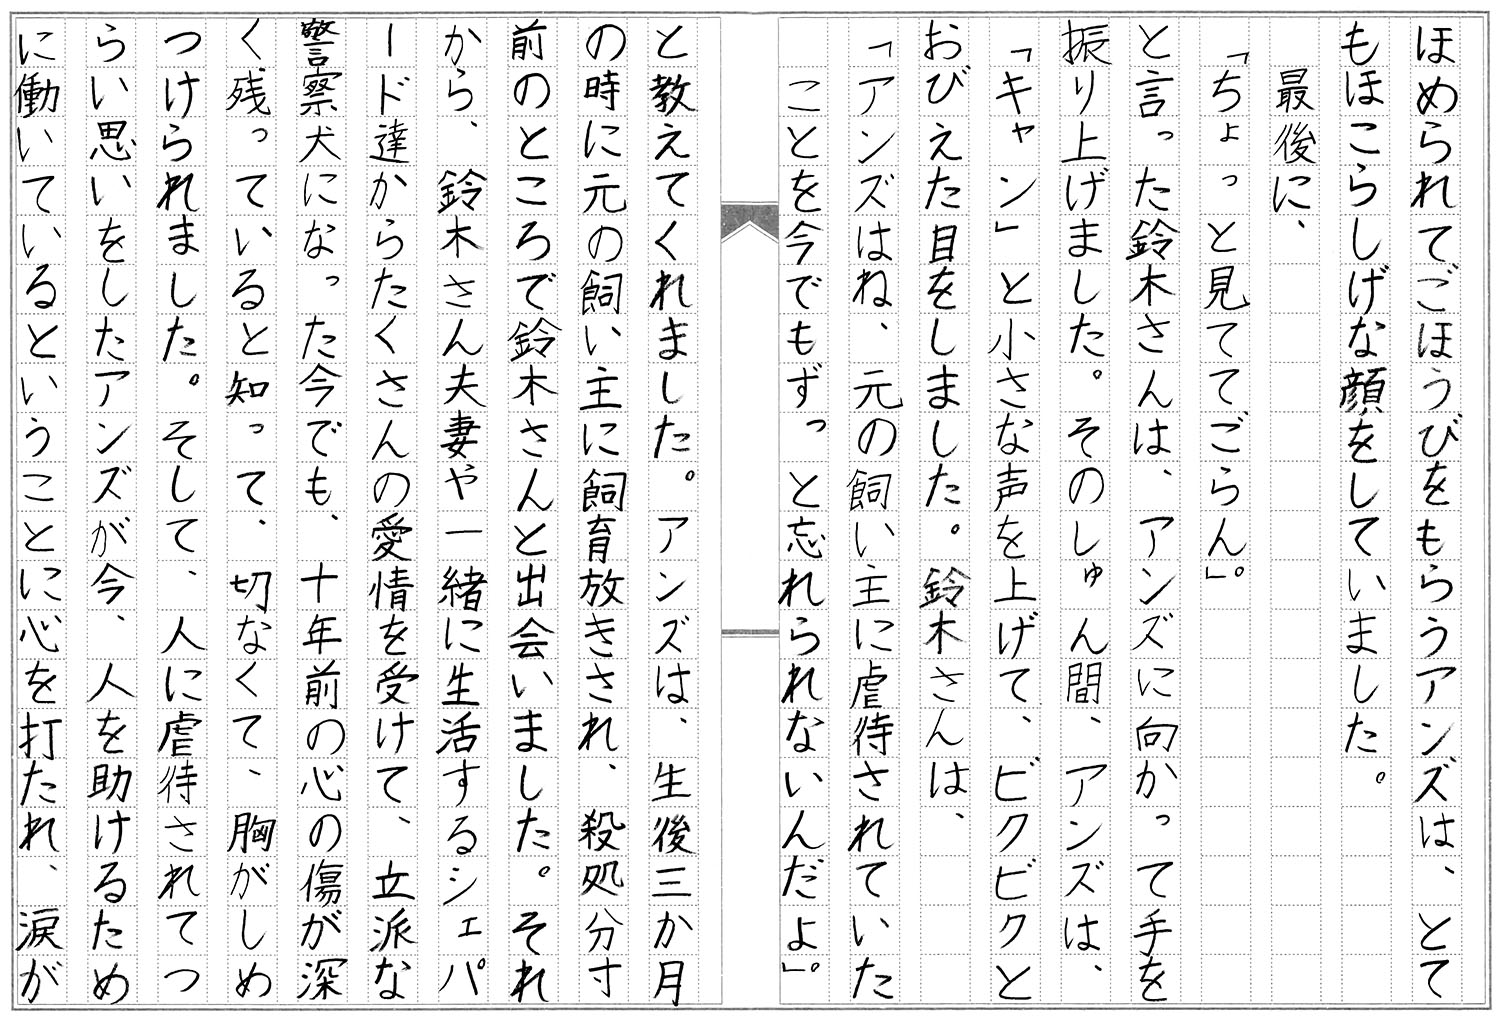 ほめられてごほうびをもらうアンズは、とて
もほこらしげな顔をしていました。
最後に、
「ちょっと見ててごらん」。
と言った鈴木さんは、アンズに向かって手を
振り上げました。そのしゅん間、アンズは、
「キャン」と小さな声を上げて、ビクビクと
おびえた目をしました。鈴木さんは、
「アンズはね、元の飼い主に虐待されていた
ことを今でもずっと忘れられないんだよ」。
と教えてくれました。アンズは、生後三か月
の時に元の飼い主に飼育放きされ、殺処分寸
前のところで鈴木さんと出会いました。それ
から、鈴木さん夫妻や一緒に生活するシェパ
ード達からたくさんの愛情を受けて、立派な
警察犬になった今でも、十年前の心の傷が深
く残っていると知って、切なくて、胸がしめ
つけられました。そして、人に虐待されてつ
らい思いをしたアンズが今、人を助けるため
に働いているということに心を打たれ、涙が